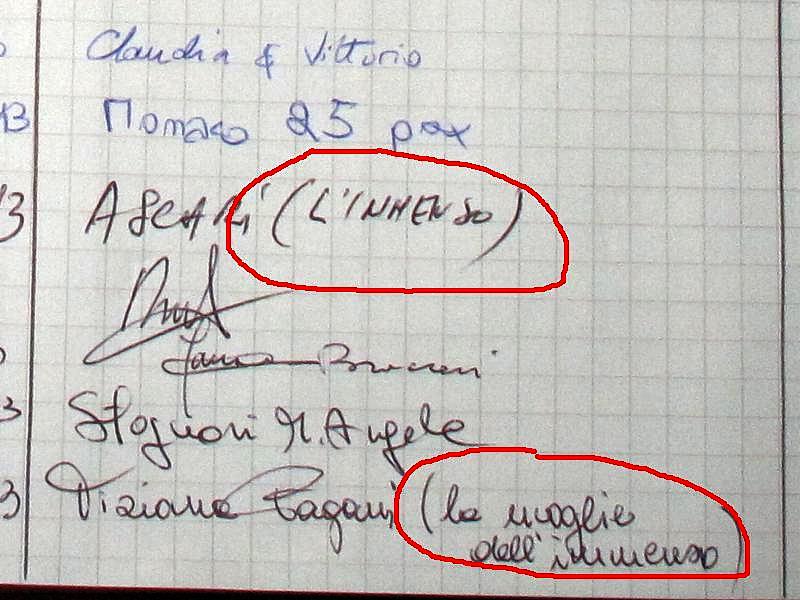 Claudia & Vittorio
13 Monaco 25 pax
13 ASCARI (L'INMENSO)
3 Stognoni M. Angela
3 Tiziana Pagani (la moglie
dell'immenso)